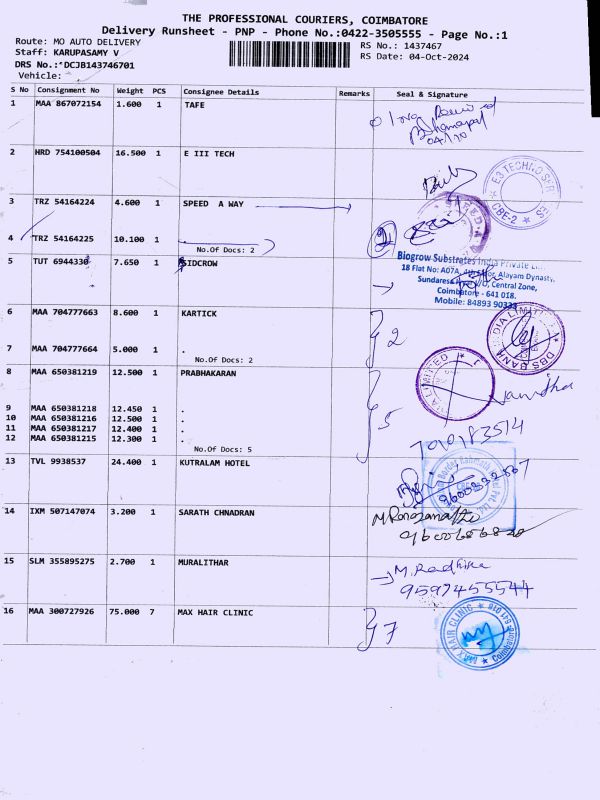 THE PROFESSIONAL COURIERS, COIMBATORE
Delivery Runsheet - PNP - Phone No.:0422-3505555 - Page No.:1
Route: MO AUTO DELIVERY
RS No.: 1437467
Staff: KARUPASAMY V
RS Date: 04-Oct-2024
DRS No.:*DCJB143746701
Vehicle:
S No Consignment No Weight PCS Consignee Details Remarks Seal & Signature
1 MAA 867072154 1.600 1 TAFE
04/10
2 HRD 754100504 16.500 1 E III TECH
E3 TECHNO SER
CBE-2
3 TRZ 54164224 4.600 1 SPEED A WAY
4 TRZ 54164225 10.100 1
No.Of Docs: 2
2
5 TUT 6944330 7.650 1 SIDCROW
Biogrow Substrates India Private
18 Flat No: A07A, 4th Floor, Alayam Dynasty,
Central Zone,
Coimbatore - 641 018.
Mobile: 84893
6 MAA 704777663 8.600 1 KARTICK
2
7 MAA 704777664 5.000 1 .
No.Of Docs: 2
DBS BANK INDIA LIMITED
8 MAA 650381219 12.500 1 PRABHAKARAN
LIMITED
9 MAA 650381218 12.450 1 .
10 MAA 650381216 12.500 1 .
5
11 MAA 650381217 12.400 1 .
12 MAA 650381215 12.300 1 .
No.Of Docs: 5
13 TVL 9938537 24.400 1 KUTRALAM HOTEL
14 IXM 507147074 3.200 1 SARATH CHNADRAN
15 SLM 355895275 2.700 1 MURALITHAR
M. Radhika
9597455544
16 MAA 300727926 75.000 7 MAX HAIR CLINIC
7
HAIR CLINIC
Coimbatore-641 018